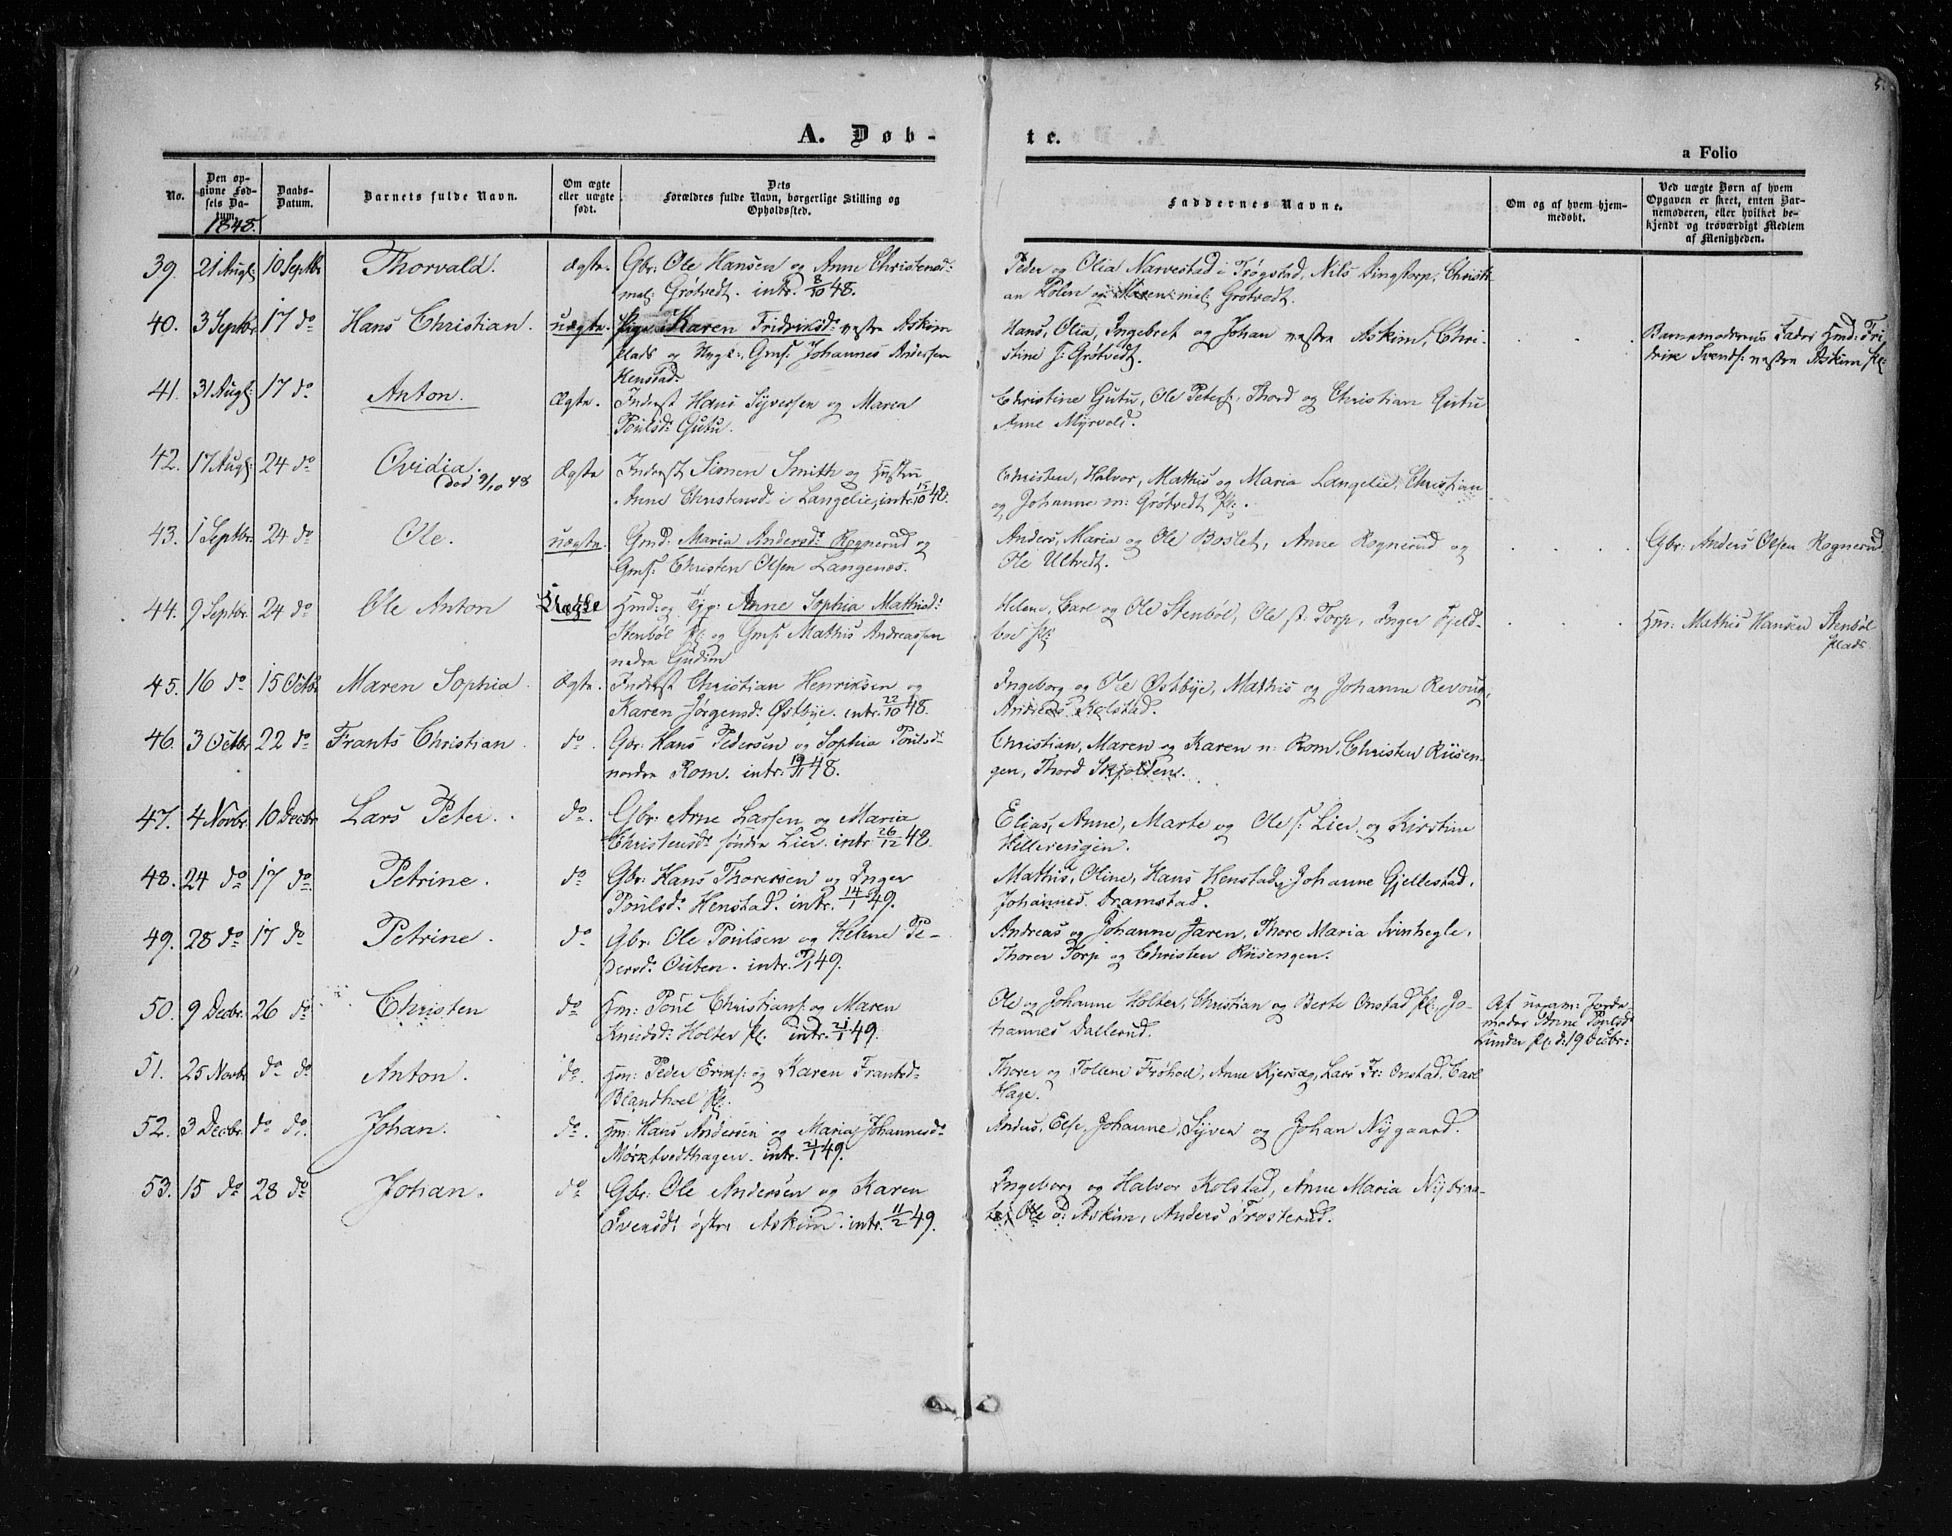 5.
A. Døb-
te.
a Folio
No.
Den op-
givne Fød-
sels Da-
tum.
1848.
Daabs-
Datum.
Barnets fulde Navn.
Om ægte
eller uægte
født.
Dets
Forældres fulde Navn, borgerlige Stilling og
Opholdssted.
Faddernes Navne.
Om og af hvem hjem-
medøbt.
Ved uægte Børn af hvem
Opgaven er skeet, enten Bar-
nemoderen, eller hvilket be-
kjendt og troværdigt Medlem
af Menigheden.
39. 21 Augs: 10 Septbr Thorvald. Ægte. Gbr: Ole Hansen og Anne Christensd:
mel: Grøtvedt. intr. 8/10 48.
Peder og Olia Narvestad i Trøgstad, Nils Singstorp, Christi
an Holen og Maren mel: Grøtvedt.
40. 3 Septbr 17 do Hans Christian. uægte. Pige Karen Fridriksd: vestre Askim
Plads og Ungk:, Gms: Johannes Andersen
Henstad.
Hans, Olia, Ingebret og Johan vestre Askim, Chri-
stine s: Grøtvedt.
Barnemoderens Fader Hmd: Fri
drik Svends: vestre Askim Pl:
41. 31 Augs: 17 do Anton. Ægte. Inderst Hans Syversen og Maren
Poulsd: Gutu.
Christine Gutu, Ole Peters: Thord og Christian Gutu
Anne Myrvold.
42. 17 Augs: 24 do Ovidia. Ægte Inderst Simen Smith og Hustru
død 9/10 48
Anne Christensd: i Langelie, intr. 15/10 48.
Christen, Halvor, Mathis og Maria Langelie, Christian
og Johanne m: Grøtvedt Pl:.
43. 1 Septbr: 24 do Ole. uægte. Gmd: Maria Andersd: Rognerud og
Gms: Christen Olsen Langenæs.
Anders, Maria og Ole Boslet, Anne Rognerud og
Ole Ultvedt.
Gbr: Anders Olsen Rognerud.
44. 9 Septbr. 24 do Ole Anton Uægte Hmd: og Tjp: Anne Sophia Mathisd:
Stenbøl Pl: og Gms: Mathis Andreassen
nedre Gudim
Helene, Carl og Ole Stenbøl, Ole st: Torp, Inger Fjeld-
boe Pl:
Hm: Mathis Hansen Stenbøl
Plads.
45. 16 do 15 Octbr Maren Sophia. Ægte. Inderst Christian Henriksen og
Karen Jørgensd: Østbye. intr. 22/10 48.
Ingeborg og Ole Østbye, Mathis og Johanne Revoug,
Andreas Kolstad.
46. 3 Octbr 22 do Frants Christian. do. Gbr: Hans Pedersen og Sophia Poulsd:
nordre Rom. intr. 19/11 48.
Christian, Maren og Karen n: Rom, Christen Riisen-
gen, Thord Skjolden.
47. 4 Novbr. 10 Decbr. Lars Peter. do. Gbr: Arne Larsen og Maria
Christensd: søndre Lier. intr 26/12 48.
Elias, Anne, Marte og Ole s: Lier og Kirstine
Hellerengen.
48. 24 do 17 do Petrine. do Gbr: Hans Thoresen og Inger
Poulsd: Henstad. intr. 14/1 49.
Mathis, Oline, Hans Henstad, Johanne Gjellestad,
Johannes Dramstad.
49. 28 do 17 do Petrine. do Gbr: Ole Poulsen og Helene Pe-
dersd: Outen. intr. 7/1 49.
Andreas og Johanne Jaren, Thore Maria Svinhegle,
Thorer Torp og Christen Riisengen.
50. 9 Decbr. 26 do Christen do Hm: Poul Christians: og Maren
Knudsd: Holter Pl. intr 21/1 49.
Ole og Johanne Holter, Christian og Berte Onstad Pl:, Jo-
hannes Dullerud.
Af uexam: Jorde
moder Anne Poulsd:
Lunder Pl: d: 19 Decbr:
51. 25 Novbr do do Anton. do. Hm: Peder Eriks: og Karen Frantsd:
Blandhoel Pl:
Thorer og Tollene Frøhoel, Anne Kjersæg, Lars Fr: Onstad, Carl
Hage.
52. 3 Decbr. do do. Johan. do. Hm: Hans Andersen og Maria Johannesd:
Mørktvedthagen. intr. 21/1 49.
Anders, Else, Johanne, Syver og Johan Nygaard.
53. 15 do 28 do Johan. do Gbr: Ole Andersen og Karen
Svensd: østre Askim. intr. 11/2 49.
Ingeborg og Halvor Kolstad, Anne Maria
Ole ø: Askim, Anders Frosterud.